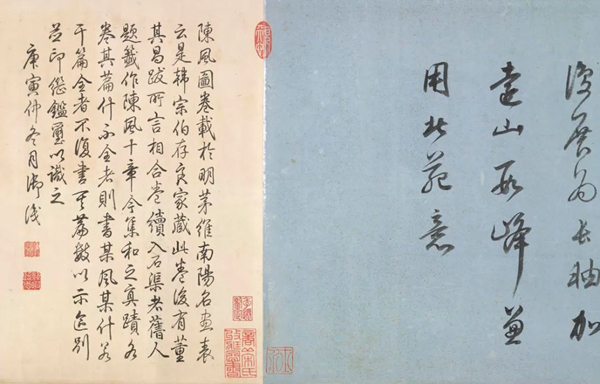 復展為長軸加
遠山數峰兼
用北苑意
陳風圖卷載於明茅維南陽名畫表
云是韓宗伯存良家藏此卷後有董
其昌跋所言相合卷續入石渠者舊人
題籤作陳風十章今集和之真蹟各
卷其篇什不全者則書某風某什若
干篇全者不復書其篇數以示區別
並印繼鑑璽以識之
庚寅仲冬月御識